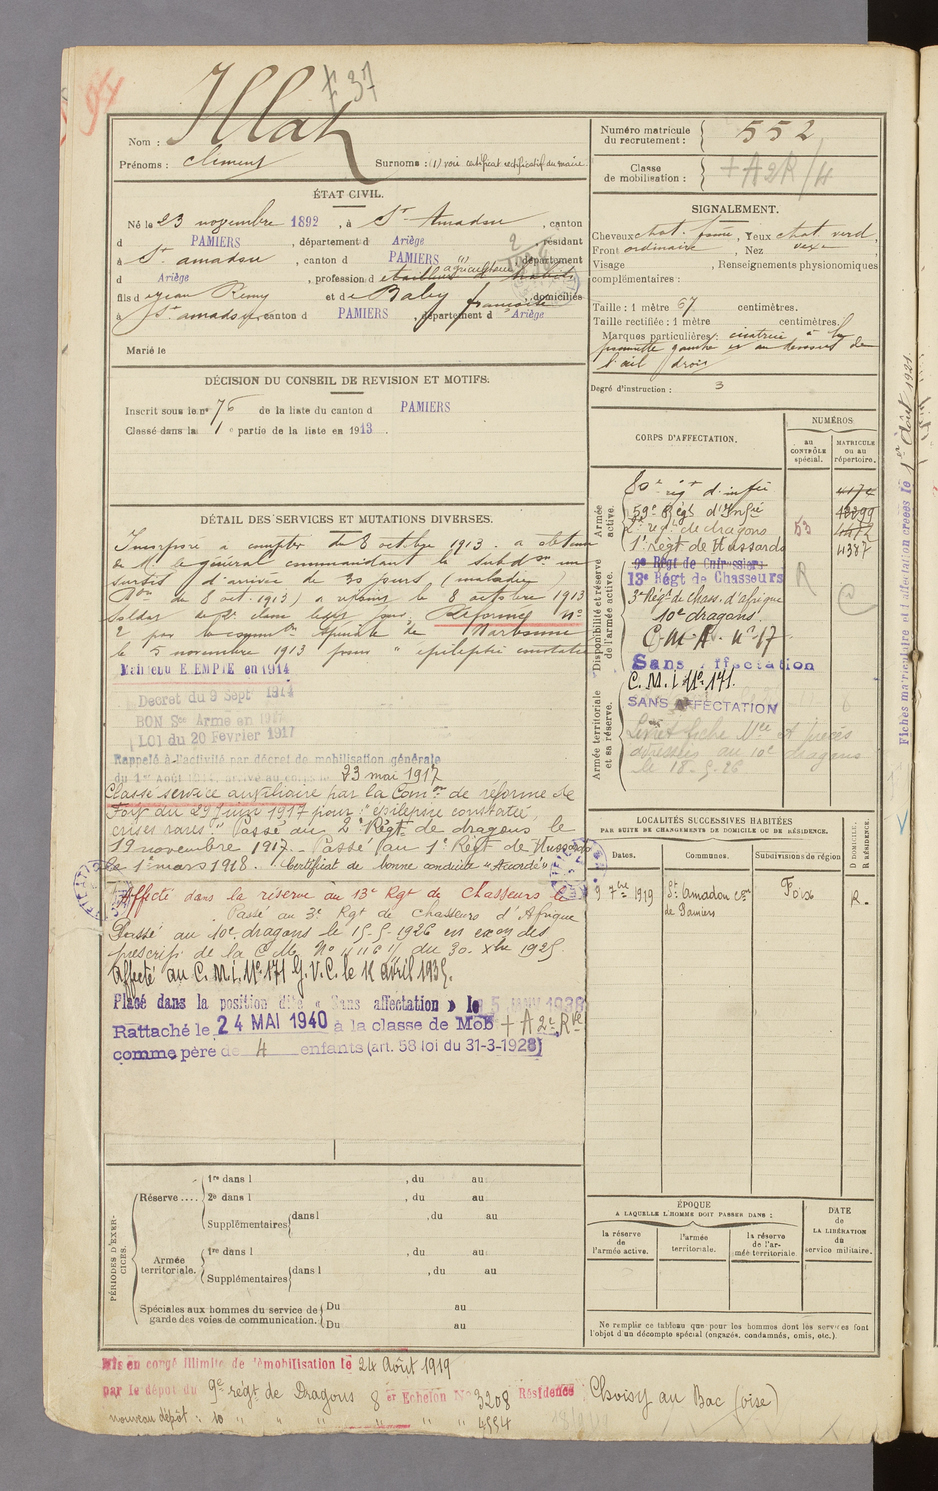 94
Illat
F 37
Nom :
Prénoms : Climent Surnoms : (1) voir certificat rectificatif du maire
Numéro matricule du recrutement : 552
Classe de mobilisation : + A 2R/4
ÉTAT CIVIL.
Né le 23 novembre 1892, à St Amadou, canton
d PAMIERS, département d Ariège, résidant
à St. amadou, canton d PAMIERS (1) département
d Ariège, profession d agriculteur
fils d Jean Rémy et d e Baby françoise, domiciliés
à St. amadou, canton d PAMIERS, département d Ariège
Marié le
SIGNALEMENT.
Cheveux chat. foncé, Yeux chat verd,
Front ordinaire, Nez vexe
Visage , Renseignements physionomiques
complémentaires :
Taille : 1 mètre 67 centimètres.
Taille rectifiée : 1 mètre centimètres.
Marques particulières : cicatrice à la
pommette gauche et au dessous de
l'œil droit
Degré d'instruction : 3
DÉCISION DU CONSEIL DE REVISION ET MOTIFS.
Inscrit sous le n° 76 de la liste du canton d PAMIERS
Classé dans la 1e partie de la liste en 1913.
CORPS D'AFFECTATION.
NUMÉROS
au CONTRÔLE spécial.
MATRICULE ou au répertoire.
Armée active.
80e régt d'infie
59e Régt d'Infie
2e régt de dragons 53
1e régt de Hussards 4387
Disponibilité et réserve de l'armée active.
9e Régt de Cuirassiers
13e Régt de Chasseurs R
3e Régt de Chass. d'afrique
10e dragons.
C. M. A. n° 17
Sans affectation
Armée territoriale et sa réserve.
C. M. I. N°. 171.
SANS AFFECTATION
Livret fiche Mle et pièces
adressées au 10e dragons
le 18-5-26
Fiches matriculaire et d'affectation créées le 1er Août 1921
DÉTAIL DES SERVICES ET MUTATIONS DIVERSES.
Incorporé à compter du 8 octobre 1913. a obtenu
de M. le général commandant la subdon un
sursis d'arrivée de 30 jours (maladie)
(Don du 8 oct. 1913) a rejoint le 8 octobre 1913
Soldat de 2e classe ledit jour. Réformé n°
2 par la common spéciale de Narbonne
le 5 novembre 1913 pour " epilepsie constatée
Maintenu EXEMPTÉ en 1914
Décret du 9 Septe 1914
BON Sce Armé en 1917
LOI du 20 Février 1917
Rappelé à l'activité par décret de mobilisation générale
du 1er Août 1914. arrivé au corps le 23 mai 1917
Classé service auxiliaire par la Comon de réforme de
Foix du 29 Juin 1917 pour : "épilepsie constatée,
crises rares". Passé au 2e Régt de dragons le
19 novembre 1917. - Passé au 1e Régt de Hussards
le 1er mars 1918. "Certificat de bonne conduite "Accordé".
Affecté dans la réserve au 13e Rgt de Chasseurs le
Passé au 3e Rgt de chasseurs d'Afrique
Passé au 10e dragons le 15.5.1926 en exon des
prescrips de la C Mle N° 11116 1/1 du 30. xbre 1925
Affecté au C.M.I. N°. 171 G.V.C. le 1e avril 1935.
Placé dans la position dite « Sans affectation » le 5 JANV 1938
Rattaché le 24 MAI 1940 à la classe de Mob + A 2e Rve
comme père de 4 enfants (art. 58 loi du 31-3-1928)
LOCALITÉS SUCCESSIVES HABITÉES
PAR SUITE DE CHANGEMENTS DE DOMICILE OU DE RÉSIDENCE.
Dates. Communes. Subdivisions de région D DOMICILE. R RÉSIDENCE.
9 7bre 1919 St. Amadou con de Pamiers Foix R.
PÉRIODES D'EXERCICES.
Réserve....
1re dans l , du au
2e dans l , du au
Supplémentaires dans l , du au
Armée territoriale.
1re dans l , du au
Supplémentaires dans l , du au
Spéciales aux hommes du service de garde des voies de communication.
Du au
Du au
ÉPOQUE
A LAQUELLE L'HOMME DOIT PASSER DANS :
la réserve de l'armée active.
l'armée territoriale.
la réserve de l'armée territoriale.
DATE de LA LIBÉRATION du service militaire.
Ne remplir ce tableau que pour les hommes dont les services font
l'objet d'un décompte spécial (engagés, condamnés, omis, etc.).
Mis en congé illimité de démobilisation le 24 Août 1919
par le dépôt du 9e régt de Dragons 8 er Echelon N° 3208 Résidence Choisy au Bac (oise)
nouveau dépôt : 10 " " " " " " 4554